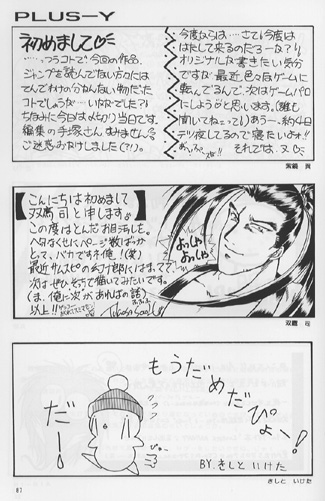 PLUS-Y
初めまして♡
……っつうコトで、今回の作品、
ジャンプを読んでない方々には
てんでわけの分かんない物だった
コトでしょうな…いななでした?!
ちなみに今日は〆切り当日です。
編集の手塚さん、すみません。
ご迷惑おかけしました(?!)。
今度ならは……さて!今度は
はたして来るのだろーな?!
オリジナルな書きたい気分
ですが最近色々なゲームに
転んでるんで、次はゲームパロ
にしようと思います。(誰も
聞いてねェって!)あう~、約4日
テツ夜してるので寝たいよォ!!
それでは、又
紫鏡 真
こんにちは初めまして
双鷹 司と申します。
この度はとんだお目汚しを。
ヘタなくせにページ数ばっか
とって、バカですネ俺!(笑)
最近サムスピの幻十郎にはまってて、
次はぜひそっちで描いてみたいです。
(ま、俺に次があればの話)
以上!!
よっしゃ
よっしゃ
双鷹 司
もうだめだ
ぴょ~!
だー!
BY.きしと いけた
きしと いけた
87